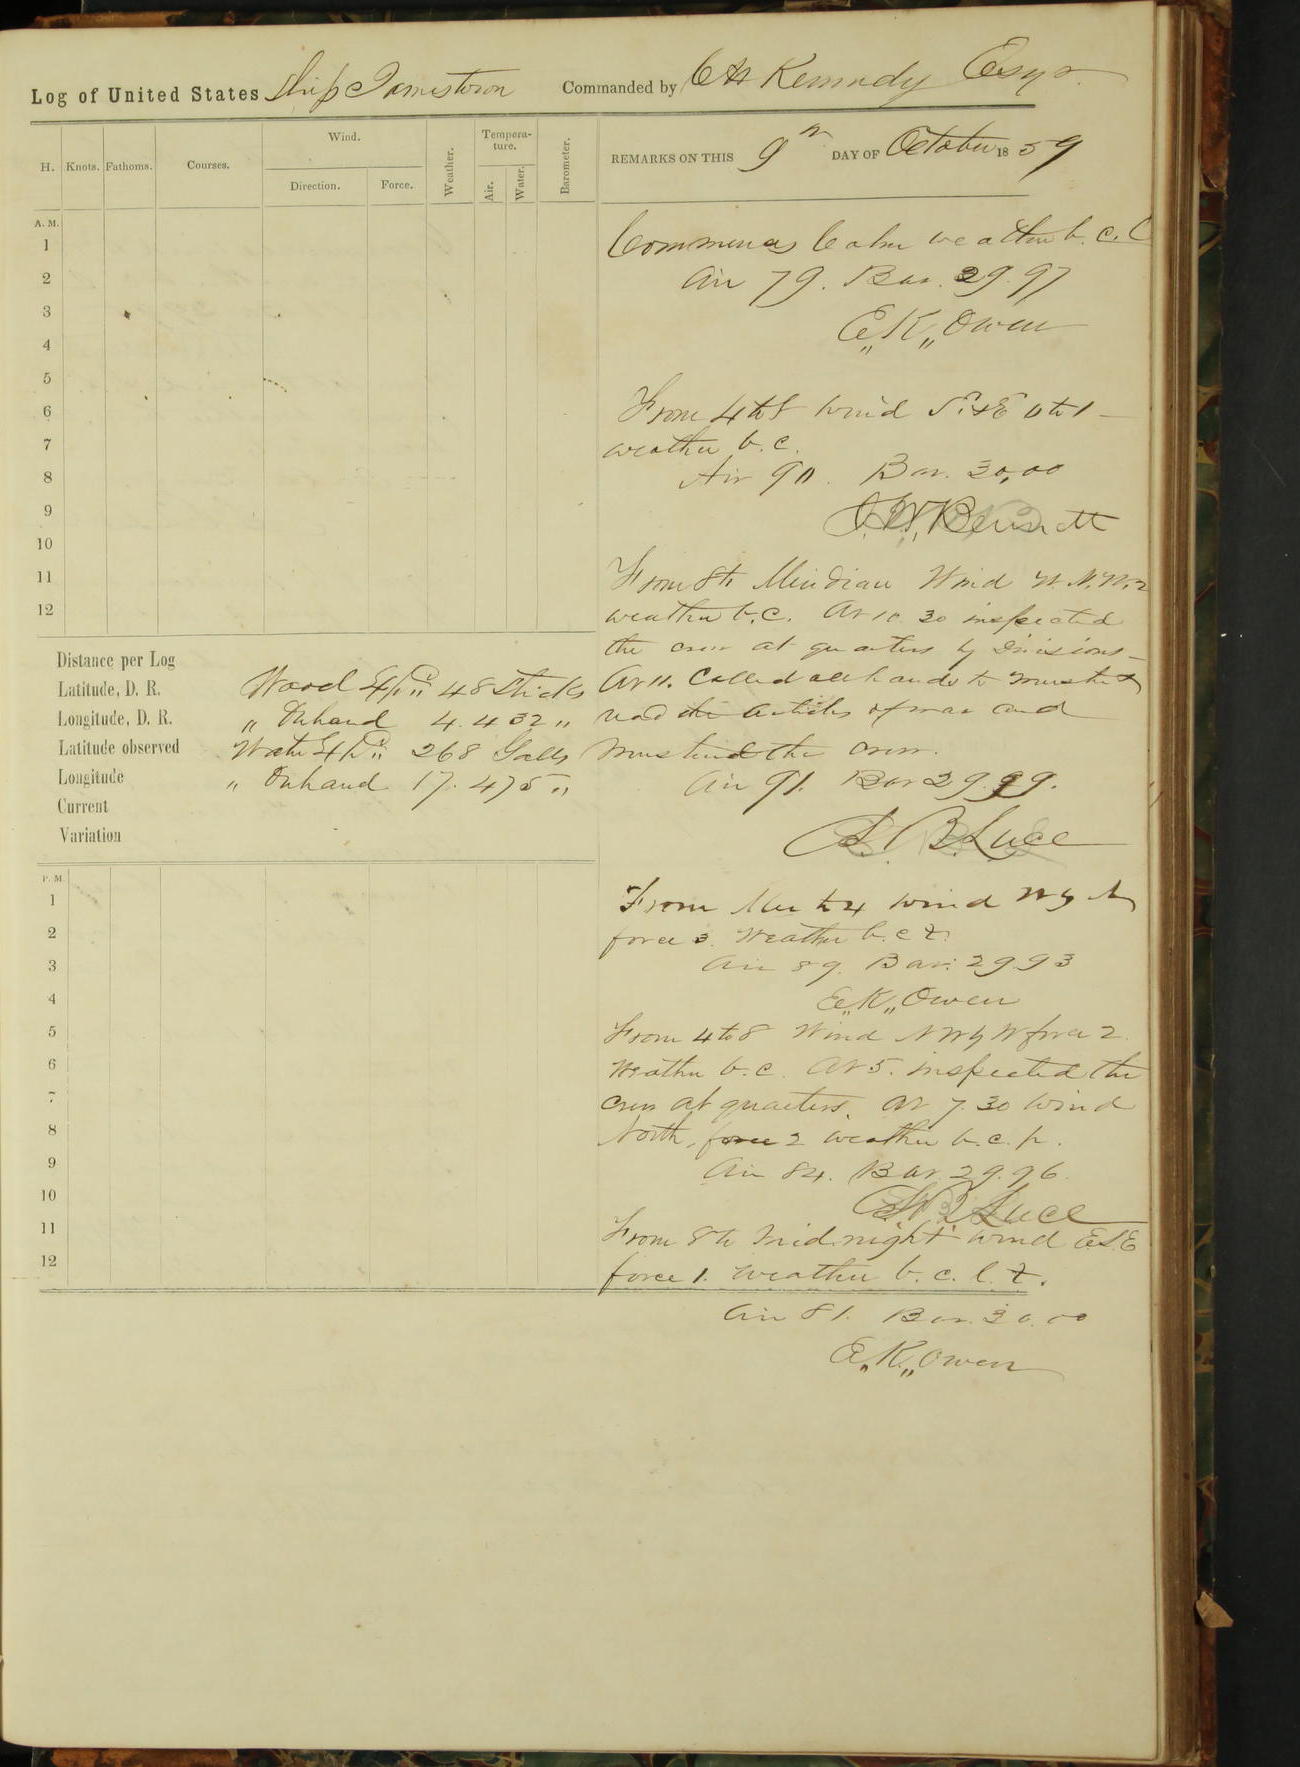 Log of United States Ship Jamestown Commanded by C H Kennedy Esqr.
H. Knots. Fathoms. Courses. Wind. Direction. Force. Weather. Tempera-ture. Air. Water. Barometer.
REMARKS ON THIS 9th DAY OF October 1859
A. M.
1
2
3
4
5
6
7
8
9
10
11
12
Commences Calm weather b. c. l
Air 79. Bar. 29.97
E,, K,, Owen
From 4 to 8 wind S. & E 0 to 1
weather b. c.
Air 90. Bar. 30,00
J. W. Bennett
From 8 to Meridian Wind W. N. W. 2
weather b. c. At 10.30 inspected
the crew at quarters by Divisions
At 11. Called all hands to muster
read the articles of war and
mustered the crew.
Air 91. Bar 29.99.
S. B. Luce
Distance per Log
Latitude, D. R.
Longitude, D. R.
Latitude observed
Longitude
Current
Variation
Wood Expd 48 Sticks
„ On hand 4.432 „
Water Expd 268 Galls
„ On hand 17.475 „
P. M.
1
2
3
4
5
6
7
8
9
10
11
12
From Mer to 4 wind W by N
force 3. Weather b. c. t.
Air 89. Bar. 29.93
E,, K,, Owen
From 4 to 8 Wind NW by W force 2.
Weather b. c. At 5. inspected the
crew at quarters. At 7.30 wind
North, force 2 weather b. c. p.
Air 84. Bar. 29.96
S B Luce
From 8 to Midnight wind ESE
force 1. weather b. c. l. t.
Air 81. Bar. 30.00
E,, K,, Owen